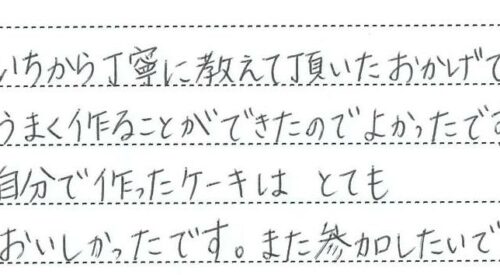 いちから丁寧に教えて頂いたおかげで
うまく作ることができたのでよかったです
自分で作ったケーキは とても
おいしかったです。また参加したいで